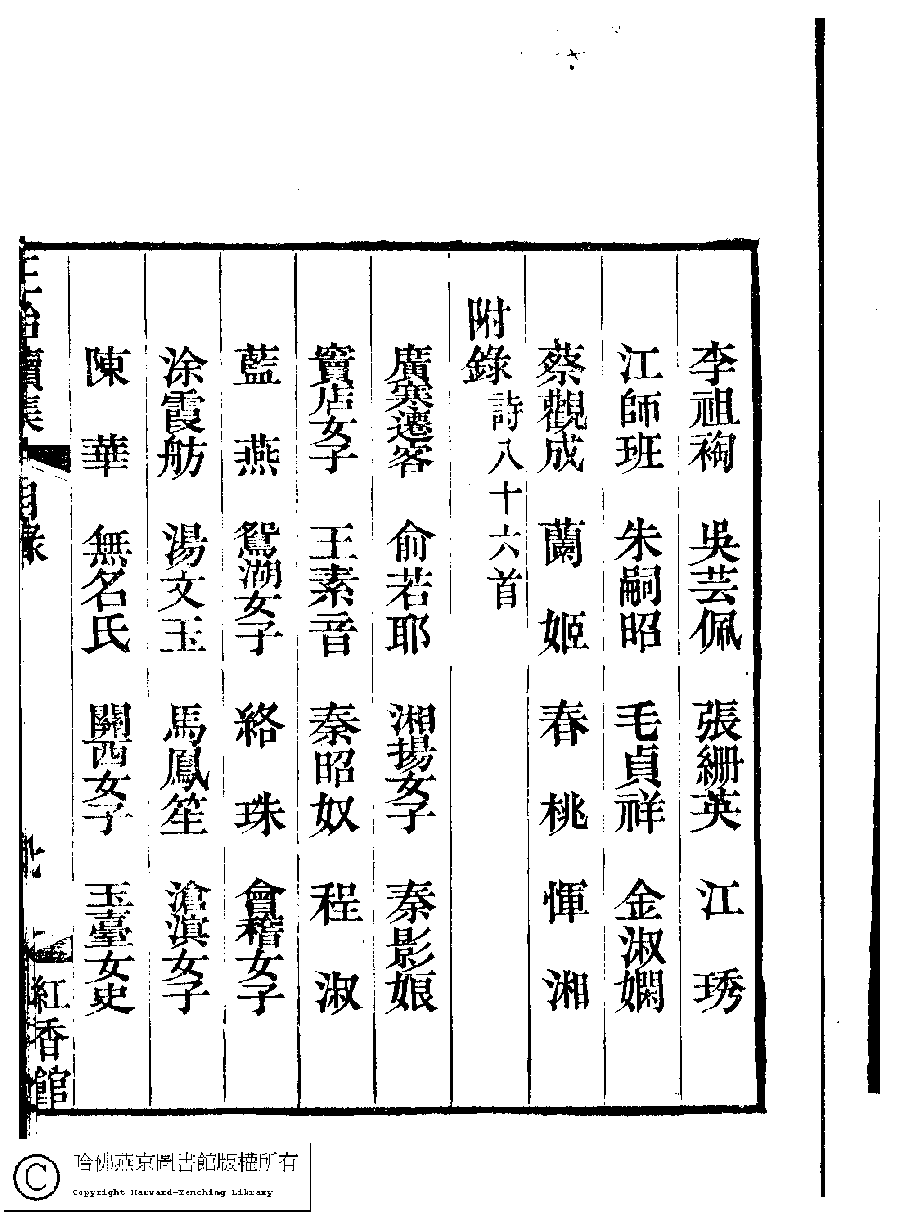 李祖裪　吳芸佩　張綳英　江　琇
江師班　朱嗣昭　毛貞祥　金淑嫻
蔡觀成　蘭　姬　春　桃　惲　湘
附錄詩八十六首
廣寒遷客　俞若耶　湘揚女子　秦影娘
竇店女子　王素音　秦昭奴　程　淑
藍　燕　鴛湖女子　絡　珠　會稽女子
涂霞舫　湯文玉　馬鳳笙　滄滇女子
陳　華　無名氏　關西女子　玉臺女史
正始續集　目錄　紅香館
哈佛燕京圖書館版權所有
Copyright Harvard-Yenching Library